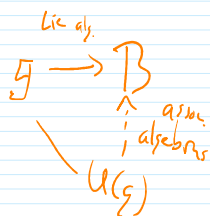 Lie alg.
g → B
assoc.
algebras
U(g)